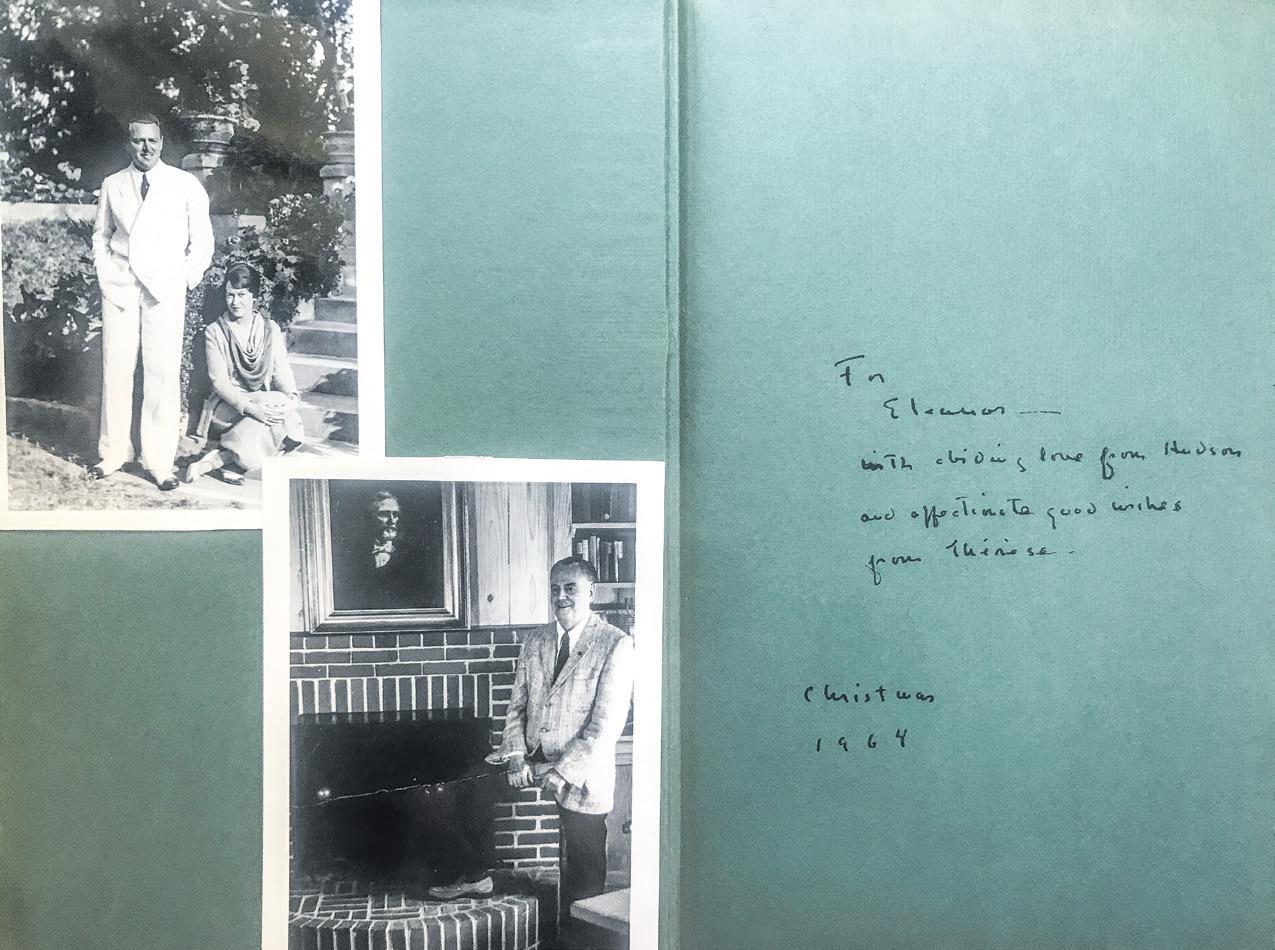 For
Eleanor —
with abiding love from Hudson
and affectionate good wishes
from Thérèse.
Christmas
1964